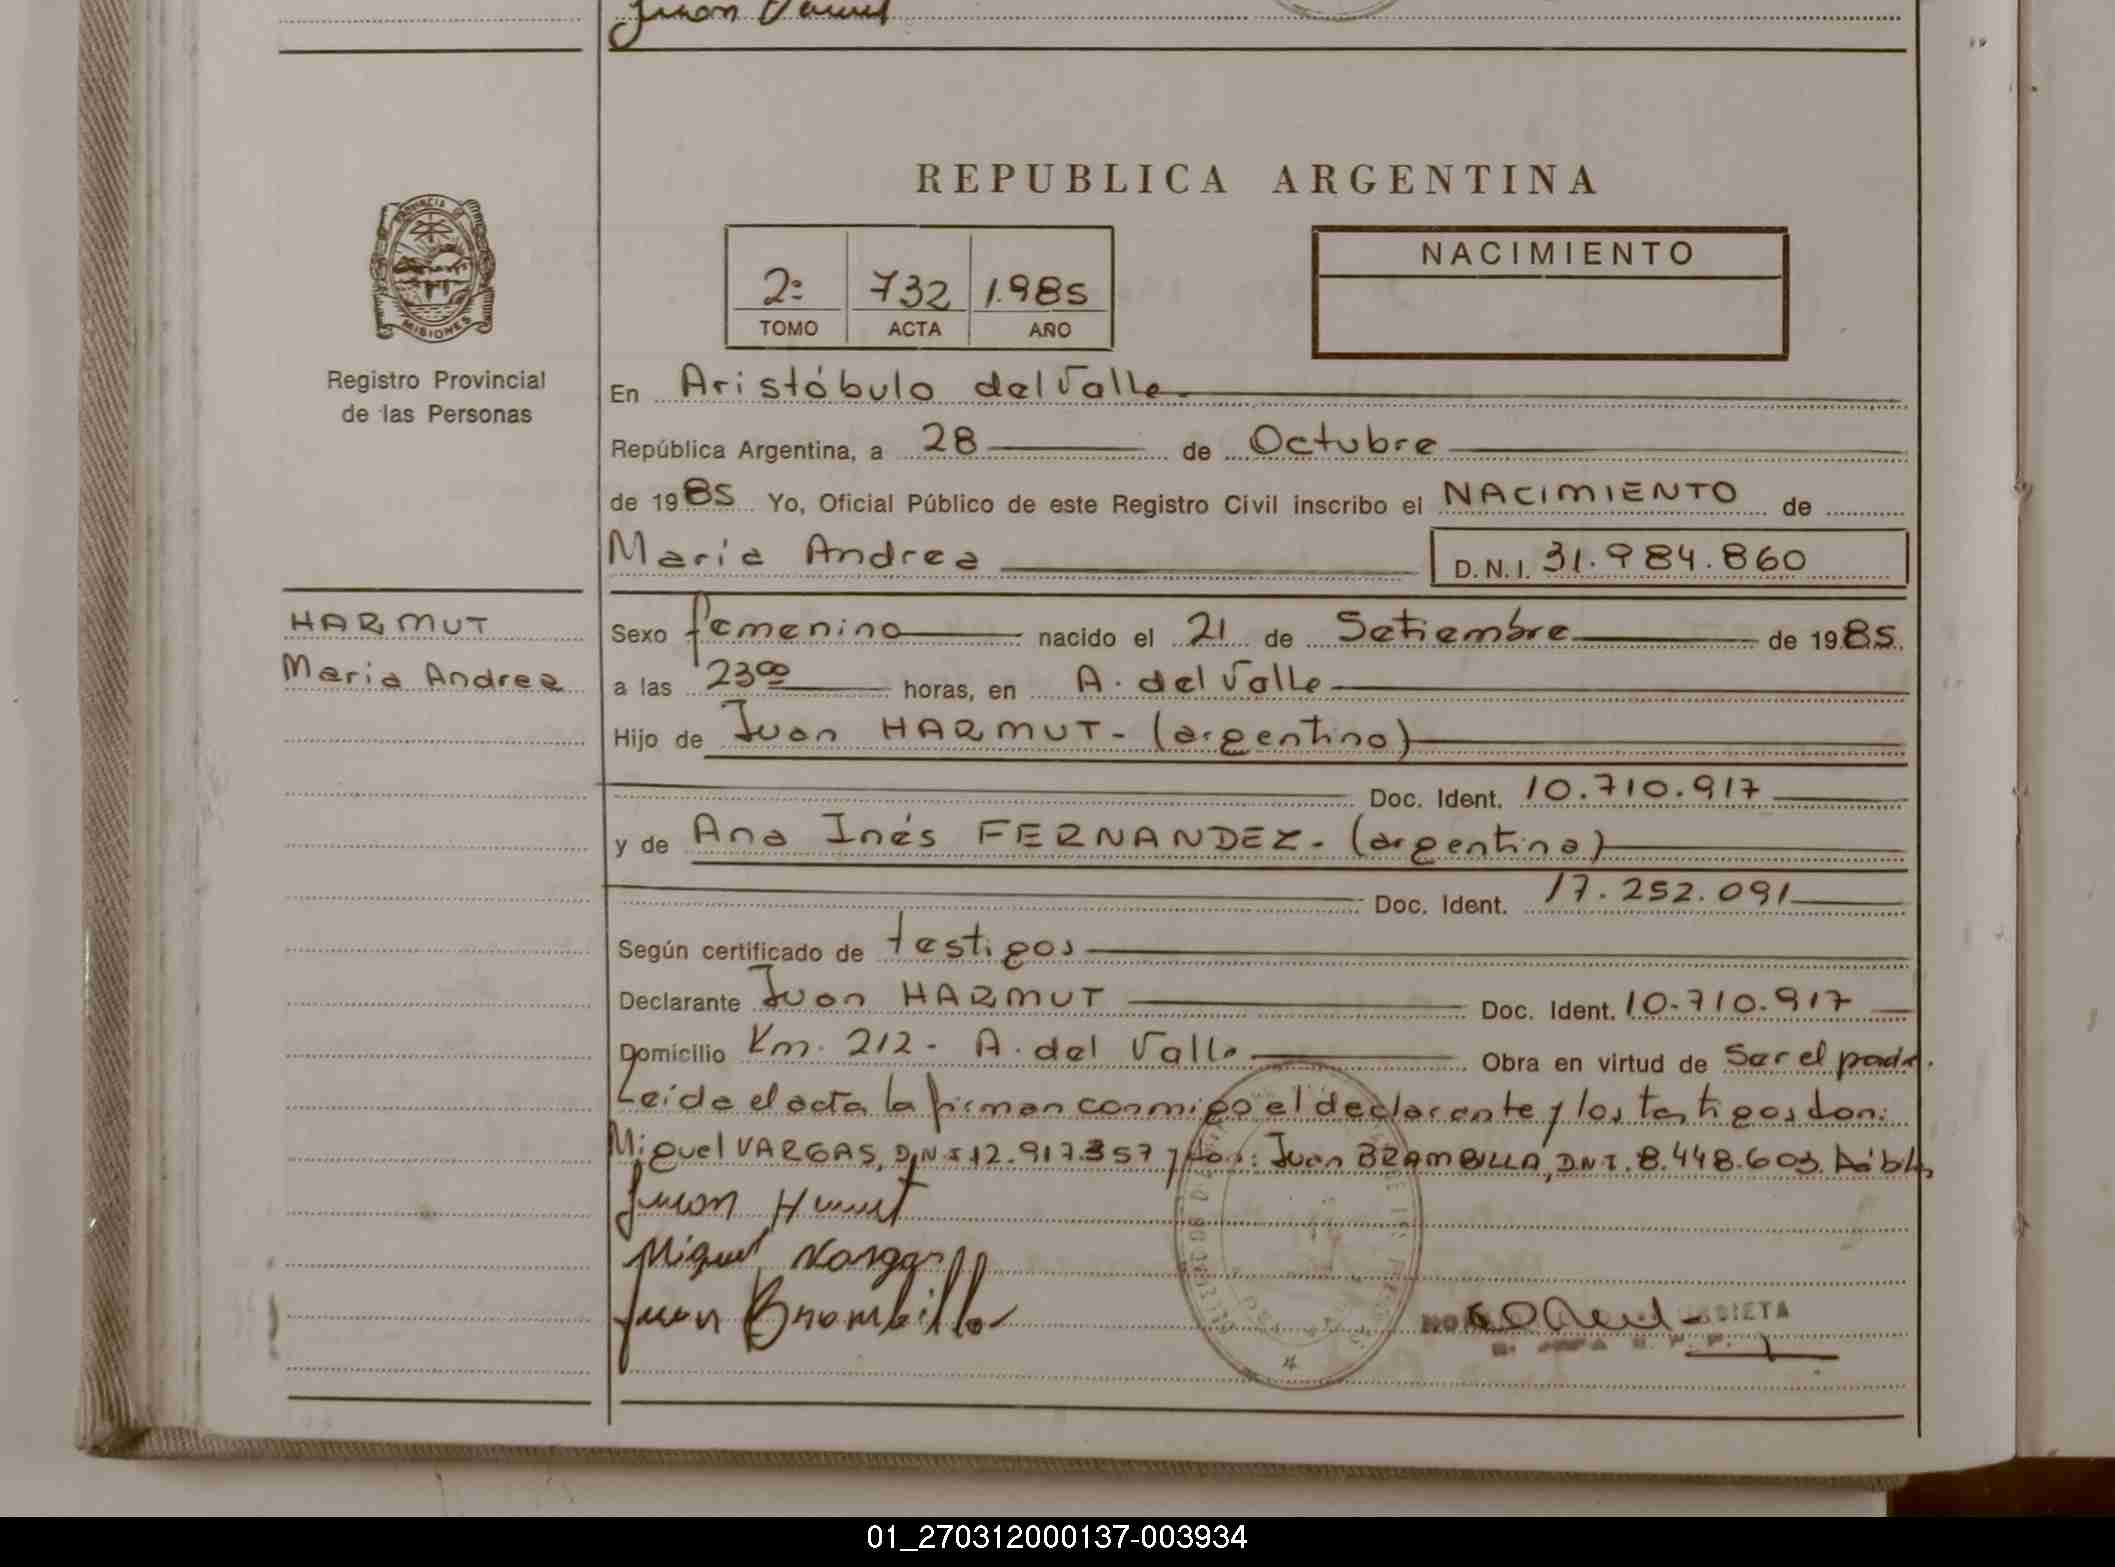 Juan
REPUBLICA ARGENTINA
NACIMIENTO
2º 732 1.985
TOMO ACTA AÑO
PROVINCIA DE
MISIONES
Registro Provincial
de las Personas
En Aristóbulo del Valle
República Argentina, a 28 de Octubre
de 1985 Yo, Oficial Público de este Registro Civil inscribo el NACIMIENTO de
María Andrea D.N.I. 31.984.860
HARMUT
María Andrea
Sexo femenino nacido el 21 de Setiembre de 1985.
a las 23⁰⁰ horas, en A. del Valle
Hijo de Juan HARMUT - (argentino)
Doc. Ident. 10.710.917
y de Ana Inés FERNANDEZ - (argentina)
Doc. Ident. 17.252.091
Según certificado de testigos
Declarante Juan HARMUT Doc. Ident. 10.710.917
Domicilio Km. 212 - A. del Valle Obra en virtud de Ser el padre.
Leída el acta la firman conmigo el declarante y los testigos don:
Miguel VARGAS, D.N.I 12.917.357 y don: Juan BRAMBILLA, D.N.I. 8.448.603. hábiles
Juan
Miguel Vargas
Juan Brambilla
01_270312000137-003934